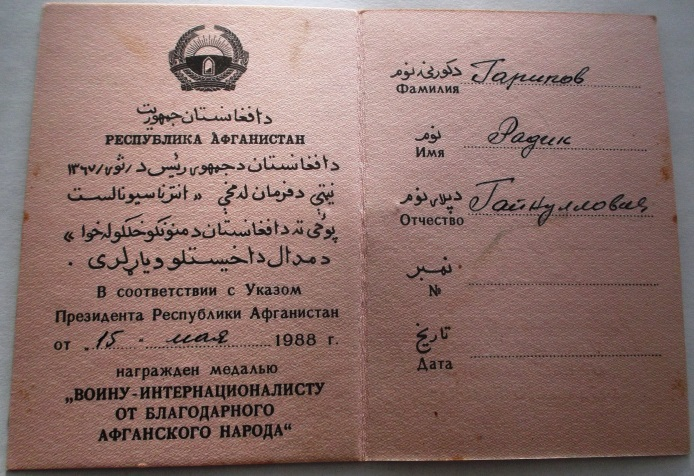 د افغانستان جمهوريت
РЕСПУБЛИКА АФГАНИСТАН
د افغانستان د جمهوری رئیس د
نیټې د فرمان له مخې « انترناسیونالست
پوځي ته د افغانستان د منونکو خلکو له خوا »
د مدال د اخیستلو ویاړ لری .
В соответствии с Указом
Президента Республики Афганистан
от 15 мая 1988 г.
награжден медалью
„ВОИНУ-ИНТЕРНАЦИОНАЛИСТУ
ОТ БЛАГОДАРНОГО
АФГАНСКОГО НАРОДА“
د کورنۍ نوم Гарипов
Фамилия
نوم Радик
Имя
د پلار نوم
Отчество
نمبر
№
تاریخ
Дата